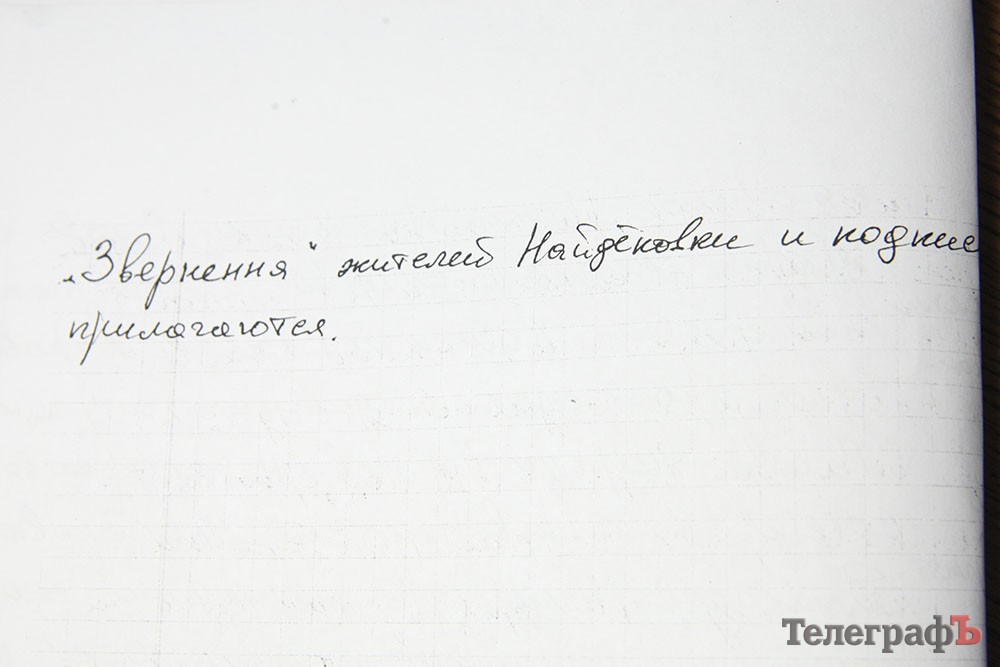 „Звернення" жителей Найдёновки и подпис
прилагаются.
ТелеграфЪ